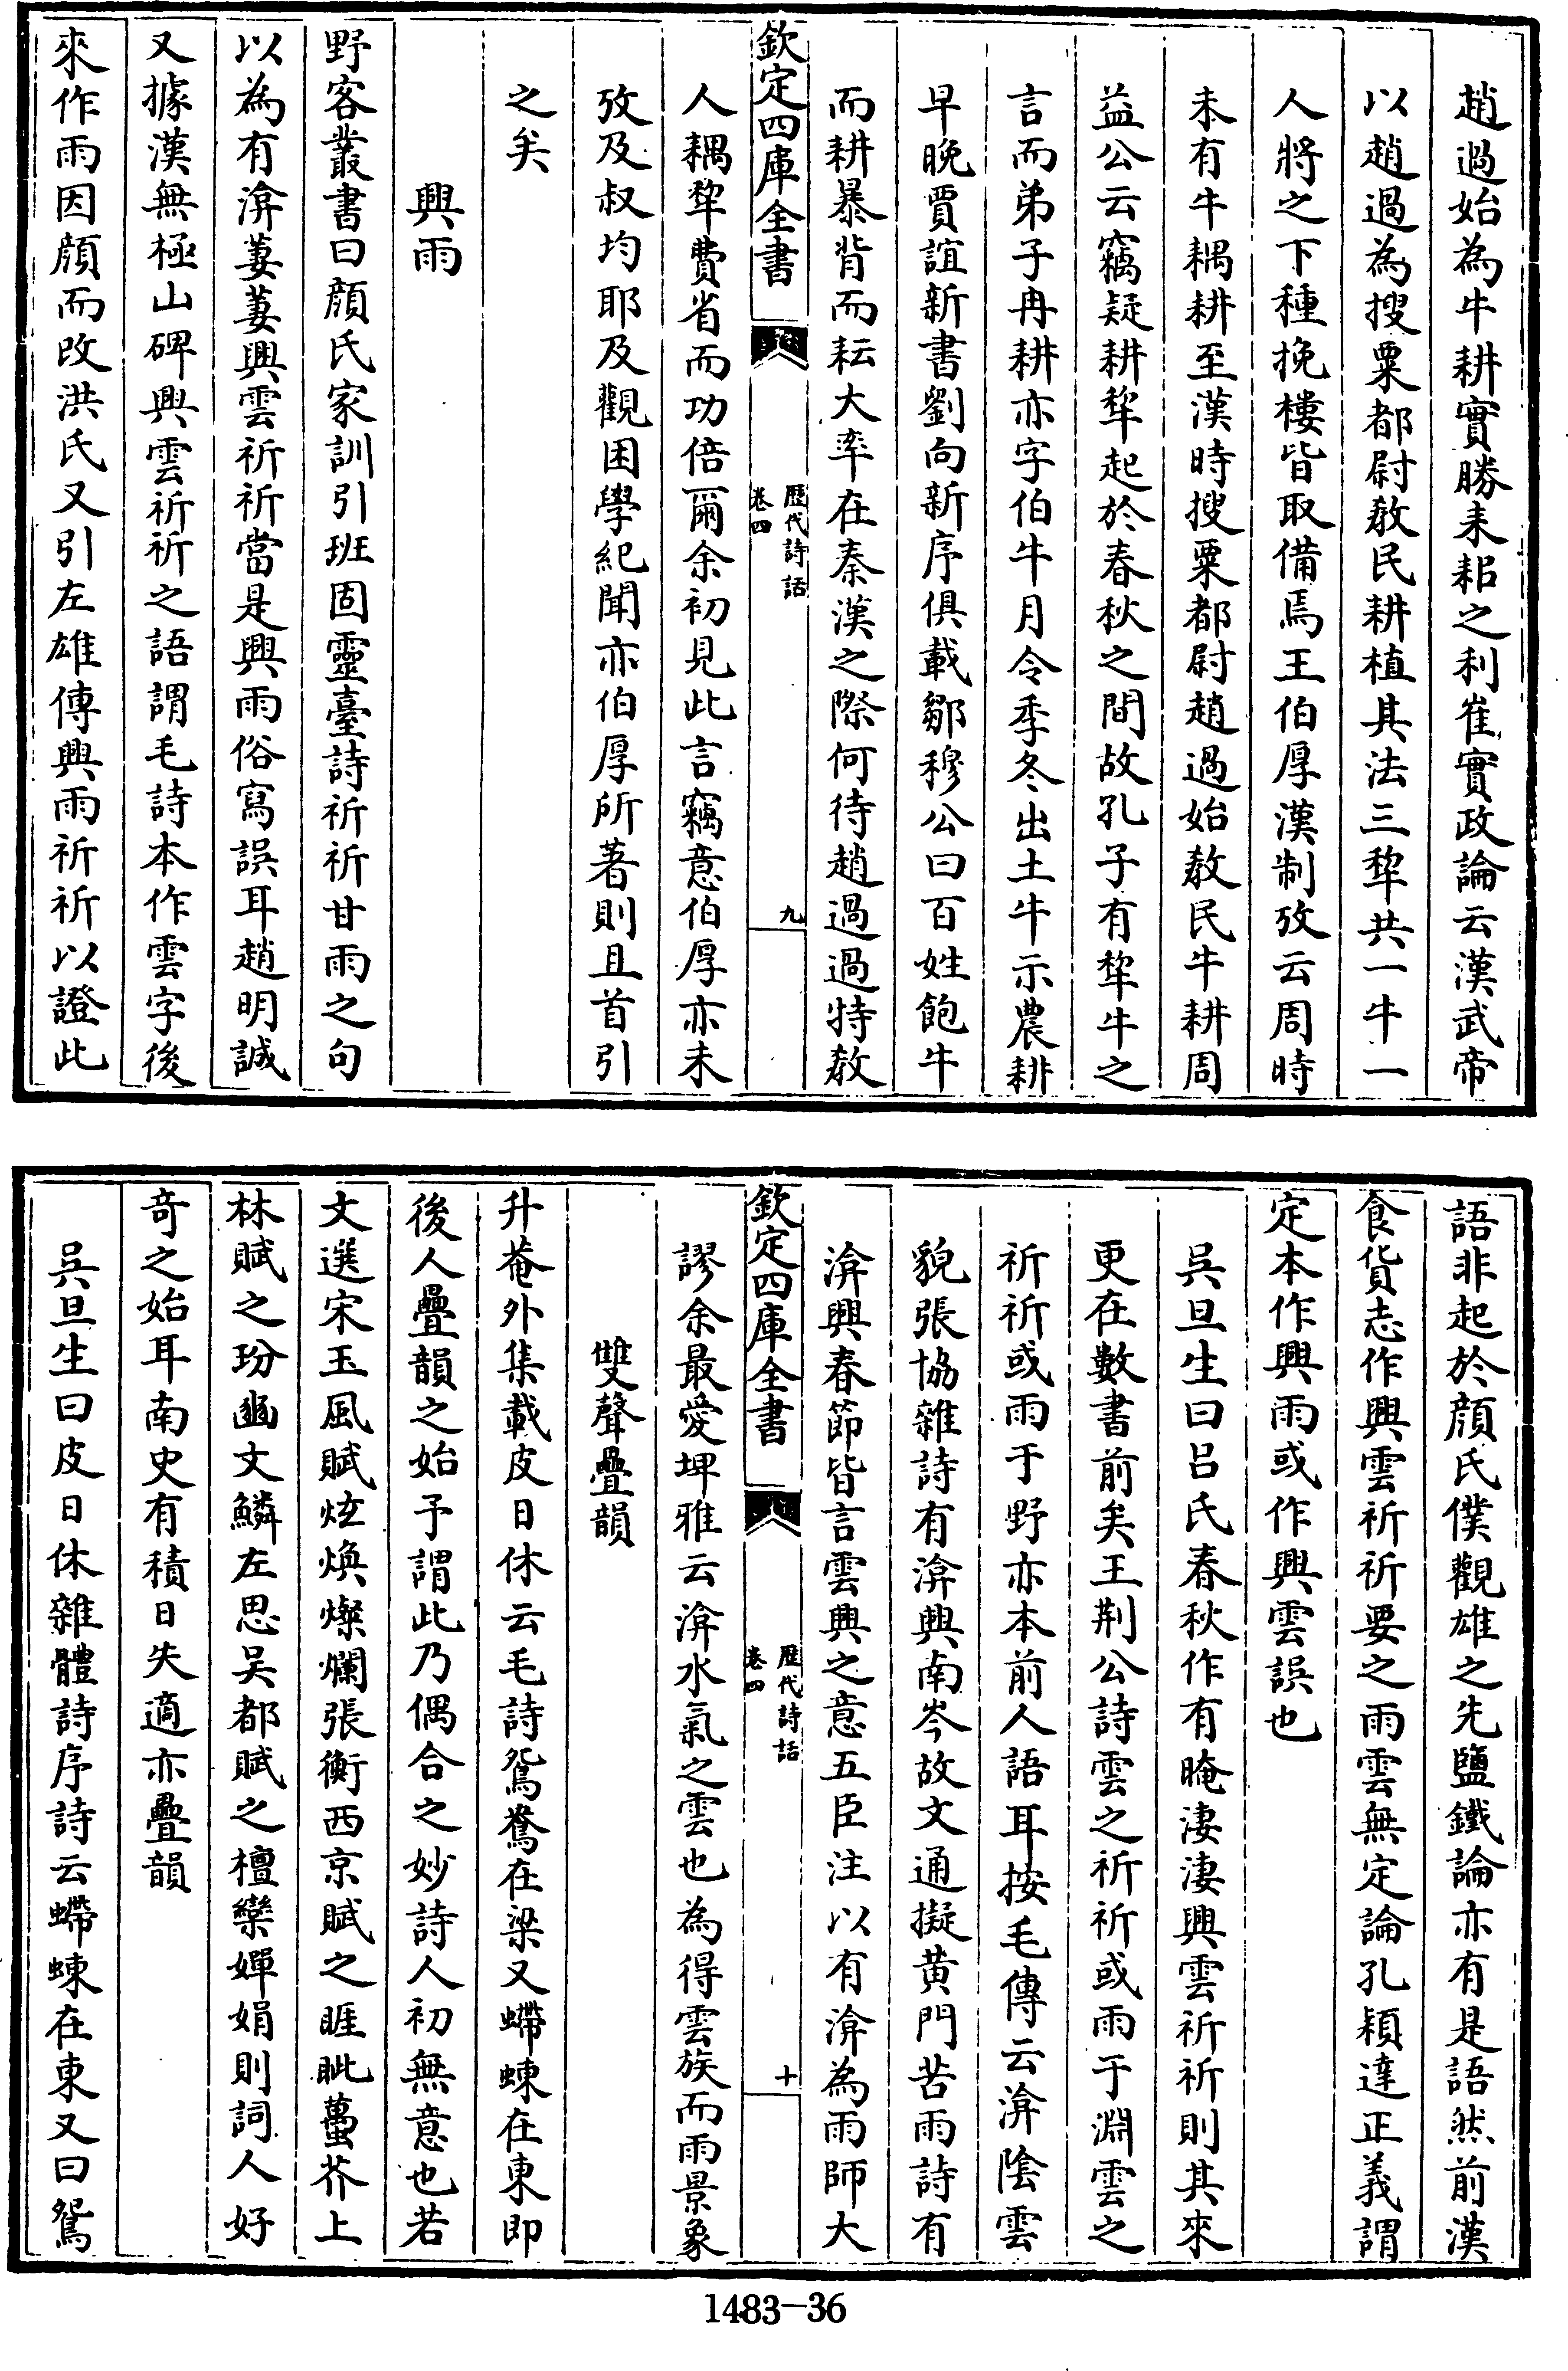 趙過始為牛耕實勝耒耜之利崔寔政論云漢武帝
以趙過為搜粟都尉敎民耕植其法三犂共一牛一
人將之下種挽耬皆取備焉王伯厚漢制攷云周時
未有牛耦耕至漢時搜粟都尉趙過始敎民牛耕周
益公云竊疑耕犂起於春秋之間故孔子有犂牛之
言而弟子冉耕亦字伯牛月令季冬出土牛示農耕
早晚賈誼新書劉向新序俱載鄒穆公曰百姓飽牛
而耕暴背而耘大率在秦漢之際何待趙過過特敎
欽定四庫全書
歷代詩話
卷四
九
人耦犂費省而功倍爾余初見此言竊意伯厚亦未
攷及叔均耶及觀困學紀聞亦伯厚所著則且首引
之矣
興雨
野客叢書曰顏氏家訓引班固靈臺詩祈祈甘雨之句
以為有渰萋萋興雲祈祈當是興雨俗寫誤耳趙明誠
又據漢無極山碑興雲祈祈之語謂毛詩本作雲字後
來作雨因顏而改洪氏又引左雄傳興雨祈祈以證此
語非起於顏氏僕觀雄之先鹽鐵論亦有是語然前漢
食貨志作興雲祈祈要之雨雲無定論孔穎達正義謂
定本作興雨或作興雲誤也
吳旦生曰吕氏春秋作有晻淒淒興雲祈祈則其來
更在數書前矣王荆公詩雲之祈祈或雨于淵雲之
祈祈或雨于野亦本前人語耳按毛傳云渰陰雲
貌張協雜詩有渰興南岑故文通擬黄門苦雨詩有
渰興春節皆言雲興之意五臣注以有渰為雨師大
欽定四庫全書
歷代詩話
卷四
十
謬余最愛埤雅云渰水氣之雲也為得雲族而雨景象
雙聲疊韻
升菴外集載皮日休云毛詩鴛鴦在梁又螮蝀在東即
後人疊韻之始予謂此乃偶合之妙詩人初無意也若
文選宋玉風賦炫煥燦爛張衡西京賦之睚眦蠆芥上
林賦之玢豳文鱗左思吳都賦之檀欒嬋娟則詞人好
奇之始耳南史有積日失適亦疊韻
吳旦生曰皮日休雜體詩序詩云螮蝀在東又曰鴛
1483-36